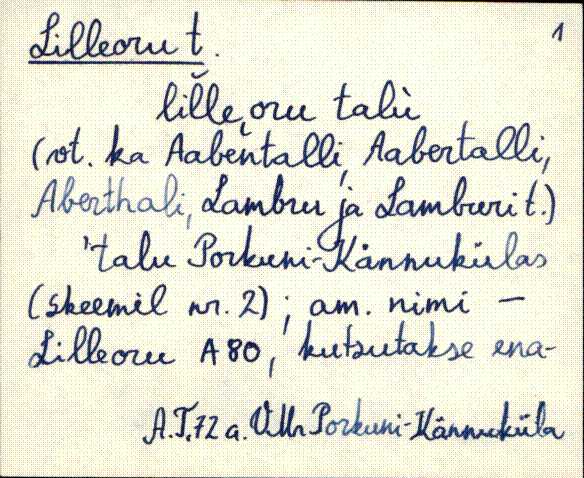 Lilleoru t. 1
lĭlle͔oru talù
(vt. ka Aabentalli, Aabertalli,
Aberthali, Lambru ja Lamburi t.)
'talu Porkuni-Kännukülas
(skeemil nr. 2); am. nimi —
Lilleoru A80, kutsutakse ena-
A.T.72 a. V.Mr Porkuni-Kännuküla